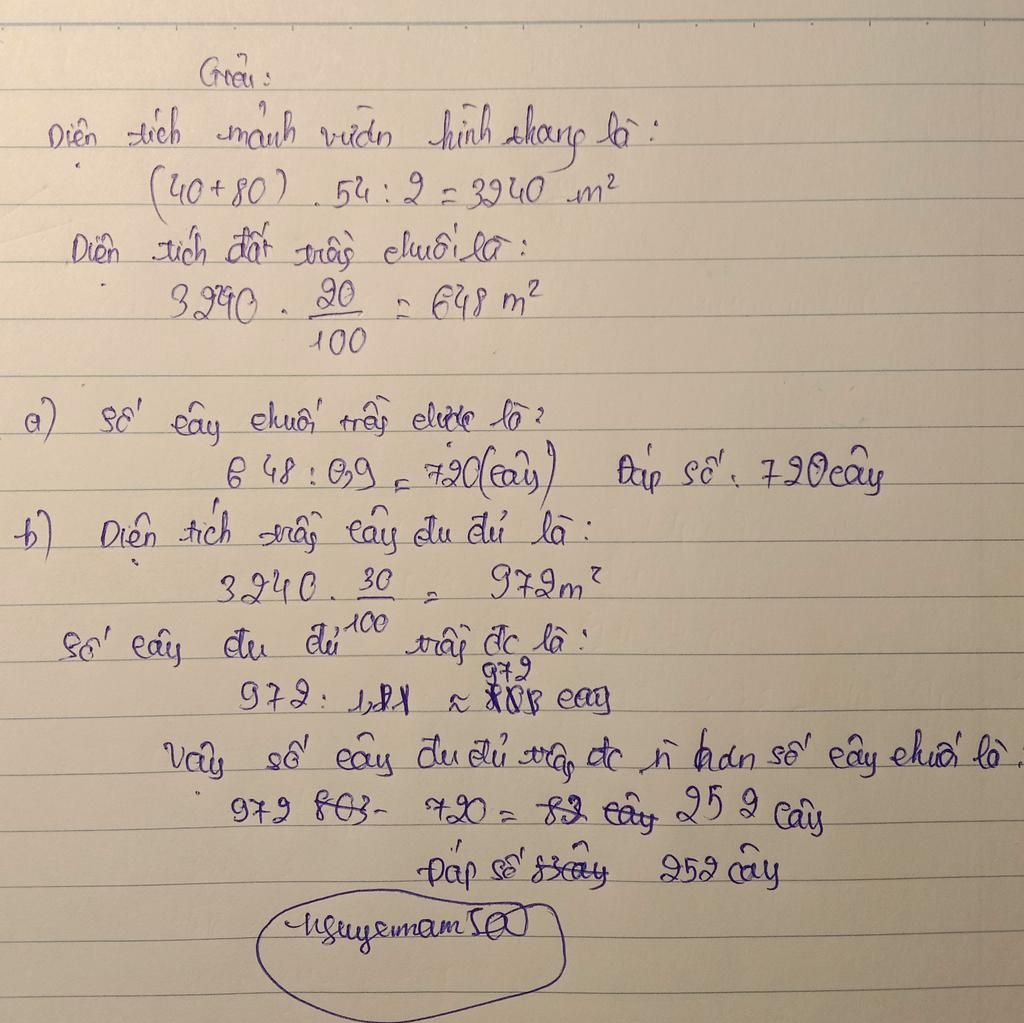 Giải:
Diện tích mảnh vườn hình thang là:
(40+80) . 54 : 2 = 3240 m²
Diện tích đất trồng chuối là:
3240 . 20/100 = 648 m²
a) Số cây chuối trồng được là:
648 : 0,9 = 720 (cây) Đáp số: 720 cây
b) Diện tích trồng cây đu đủ là:
3240 . 30/100 = 972 m²
Số cây đu đủ trồng đc là:
972 : ≈ 972 cây
Vậy số cây đu đủ trồng đc n hơn số cây chuối là:
972 803 - 720 = 83 cây 252 cây
Đáp số 83 cây 252 cây